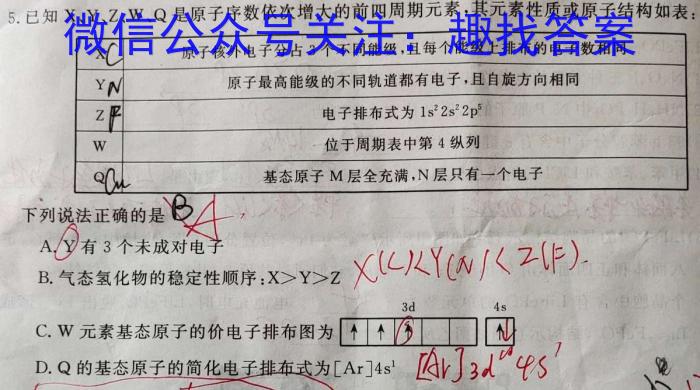 5.已知X、Y、Z、W、Q是原子序数依次增大的前四周期元素,其元素性质或原子结构如表:
微信公众号关注:趣找答案
X C 原子核外电子分占3个不同能级,且每个能级上排布的电子数相同
Y N 原子最高能级的不同轨道都有电子,且自旋方向相同
Z F 电子排布式为1s²2s²2p⁵
W 位于周期表中第4纵列
Q Cu 基态原子M层全充满,N层只有一个电子
下列说法正确的是 B A
A.Y有3个未成对电子
B.气态氢化物的稳定性顺序:X>Y>Z X(C)<Y(N)<Z(F).
3d 4s
C.W元素基态原子的价电子排布图为 ↑ ↑ ↑ ↑
D.Q的基态原子的简化电子排布式为[Ar]4s¹ [Ar]3d¹⁰4s¹